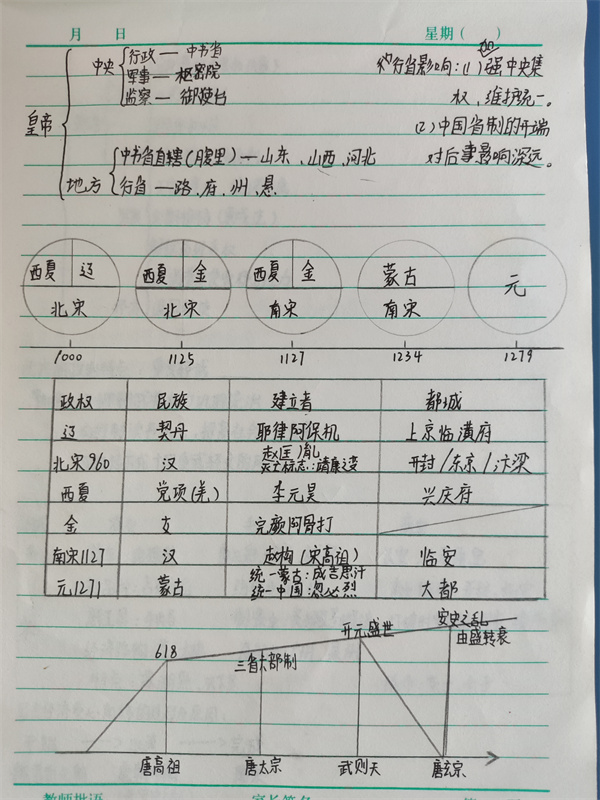 月 日 星期( )
皇帝
中央
行政 — 中书省
军事 — 枢密院
监察 — 御使台
地方
中书省直辖(腹里) — 山东、山西、河北
行省 — 路、府、州、悬
行省影响:(1)加强中央集
权,维护统一。
(2)中国省制的开端
对后事影响深远。
西夏 辽 北宋
西夏 金 北宋
西夏 金 南宋
蒙古 南宋
元
1000 1125 1127 1234 1279
政权 民族 建立者 都城
辽 契丹 耶律阿保机 上京临潢府
北宋960 汉 赵匡胤 开封/东京/汴梁
灭亡标志:靖康之变
西夏 党项(羌) 李元昊 兴庆府
金 女 完颜阿骨打
南宋1127 汉 赵构(宋高祖) 临安
元1271 蒙古 统一蒙古:成吉思汗 大都
统一中国:忽必烈
618 三省六部制 开元盛世 安史之乱
由盛转衰
唐高祖 唐太宗 武则天 唐玄宗
教师批语 家长签名